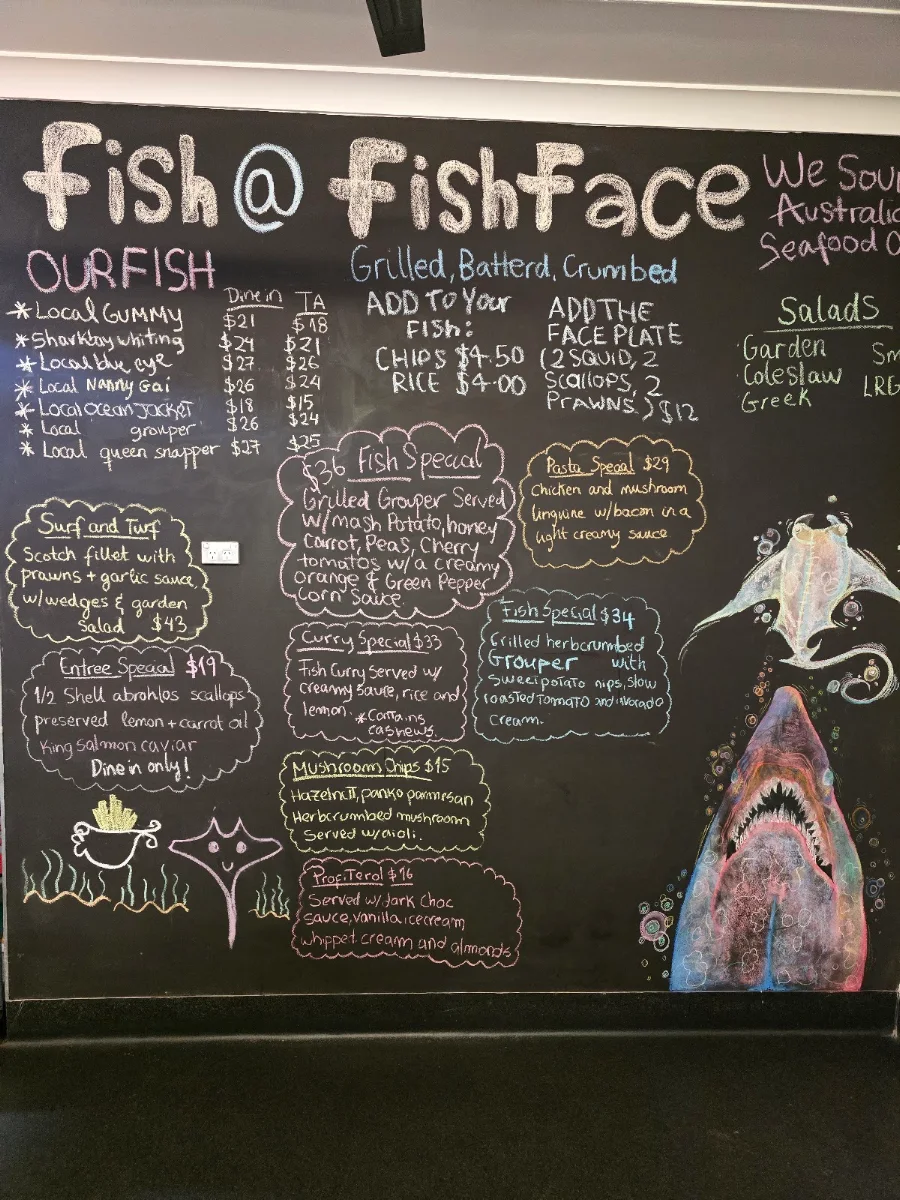 fish @ fishface
We Sour
Australia
Seafood O
OUR FISH
Dine in TA
* Local GUMMY $21 $18
* Sharkbay whiting $24 $21
* Local blue eye $27 $26
* Local Nanny Gai $26 $24
* Local ocean JACKET $18 $15
* Local grouper $26 $24
* Local queen snapper $27 $25
Grilled, Batterd, Crumbed
ADD TO YOUR
FISH:
CHIPS $4.50
RICE $4.00
ADD THE
FACE PLATE
(2 SQUID, 2
SCALLOPS, 2
PRAWNS) $12
Salads
Garden
Coleslaw
Greek
Sm
LRG
$36 Fish Special
Grilled Grouper Served
w/mash Potato, honey
Carrot, Peas, Cherry
tomatos w/a creamy
orange & Green Pepper
Corn Sauce
Pasta Special $29
Chicken and mushroom
linguine w/bacon in a
light creamy sauce
Surf and Turf
Scotch fillet with
prawns + garlic sauce
w/wedges & garden
Salad $43
Entree Special $19
1/2 Shell abrohlos scallops
preserved lemon + carrot oil
King salmon caviar
Dine in only!
Curry Special $33
Fish Curry Served w/
creamy sauce, rice and
lemon. *Contains
cashews.
Fish Special $34
Grilled herbcrumbed
Grouper with
Sweet potato nips, slow
roasted Tomato and avorado
cream.
Mushroom Chips $15
Hazelnut, panko parmesan
Herbcrumbed mushroom
Served w/aioli.
Profiterol $16
Served w/dark choc
sauce, vanilla icecream
whippet cream and almonds